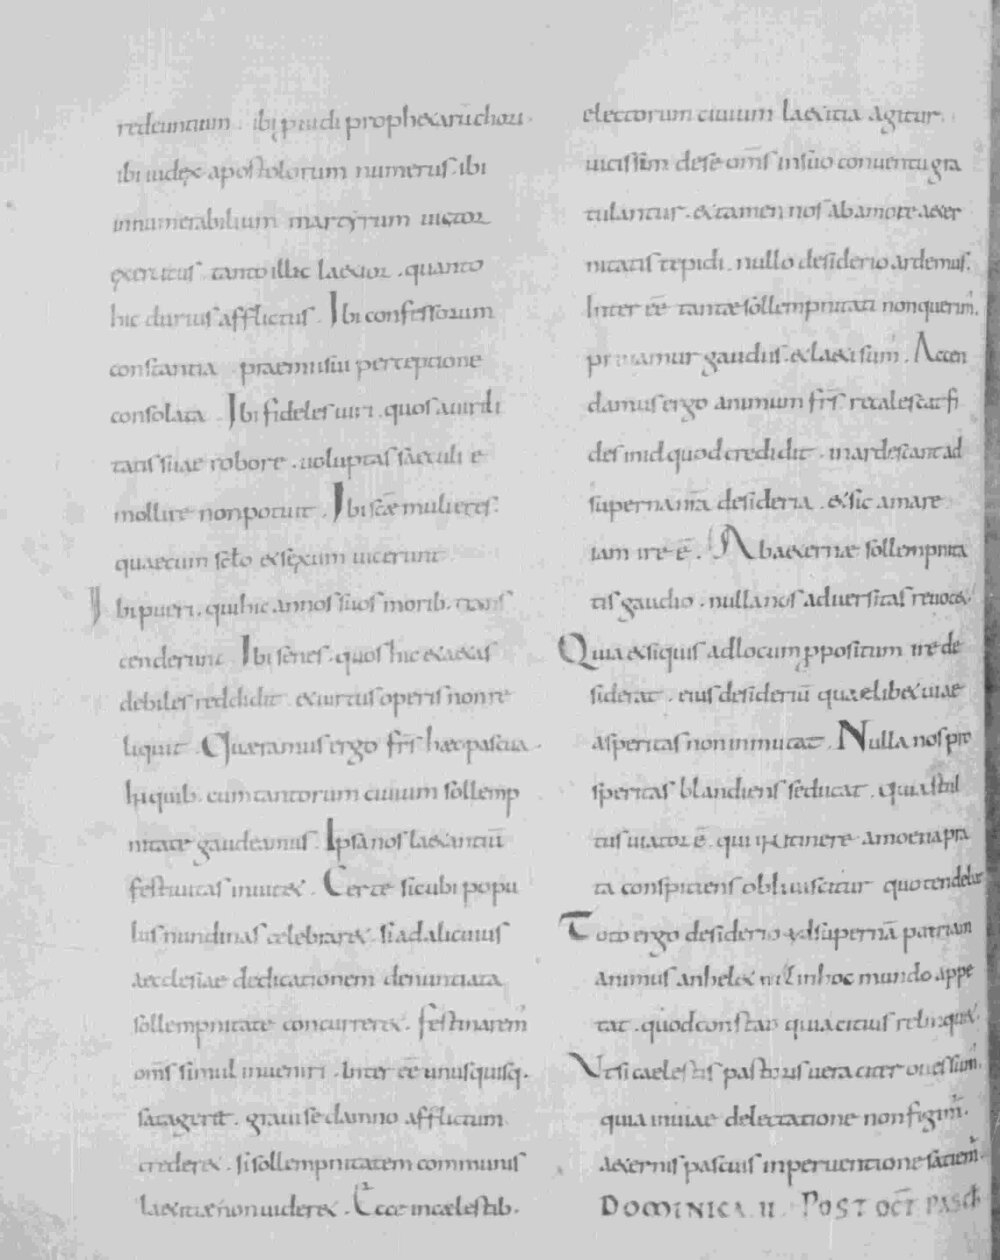 redeuntium . ibi p̄uidi prophetarū chori .
ibi iudex apostolorum numerus . ibi
innumerabilium martyrum uictor
exercitus . tanto illic laetior . quanto
hic durius afflictus . Ibi confessorum
constantia praemii sui perceptione
consolata . Ibi fideles uiri . quos a uirili
tatis suae robore . uoluptas saeculi e
mollire non potuit . Ibi scāe mulieres .
quae cum sclo et sexum uicerunt
Ibi pueri . qui hic annos suos morib . trans
cenderunt Ibi senes . quos hic et aetas
debiles reddidit et uirtus operis non re
liquit . Quaeramus ergo frs̄ haec pascua .
In quib . cum tantorum ciuium sollemp
nitate gaudeamus . Ipsa nos laetantiū
festiuitas inuitet . Certe sicubi popu
lus nundinas celebraret . si ad alicuius
aecclesiae dedicationem denuntiata
sollempnitate concurreret . festinarem
om̄s simul inueniri . Inter eē unusquisq .
satageret . graui se damno afflictum
crederet . si sollempnitatem communis
laetitiae non uideret . Ecce in caelestib .
electorum ciuium laetitia agitur .
uicissim de se om̄s in suo conuentu gra
tulantur . et tamen nos ab amore aeter
nitatis tepidi . nullo desiderio ardemus .
Inter eē tantae sollempnitati non querim .
priuamur gaudiis . et laeti sum . Accen
damus ergo animum frs̄ recalescat fi
des in id quod credidit . inardescant ad
superna nr̄a desideria . et sic amare
iam ire ē . Ab aeternae sollempnita
tis gaudio . nulla nos aduersitas reuocet .
Quia et siquis ad locum ppositum ire de
siderat . eius desideriū quaelibet uiae
asperitas non inmutat . Nulla nos pro
speritas blandiens seducat . quia stul
tus uiator ē . qui in itinere amoena pra
ta conspiciens obliuiscitur quo tendebat
Toto ergo desiderio ad supernā patriam
animus anhelet nil in hoc mundo appe
tat . quod constat quia citius relinquet .
Ut si caelestis pastoris ueraciter oues sum .
quia in uiae delectatione non figim̄ .
aeternis pascuis in peruentione satiem .
DOMINICA II POST OCT̄ PASCH